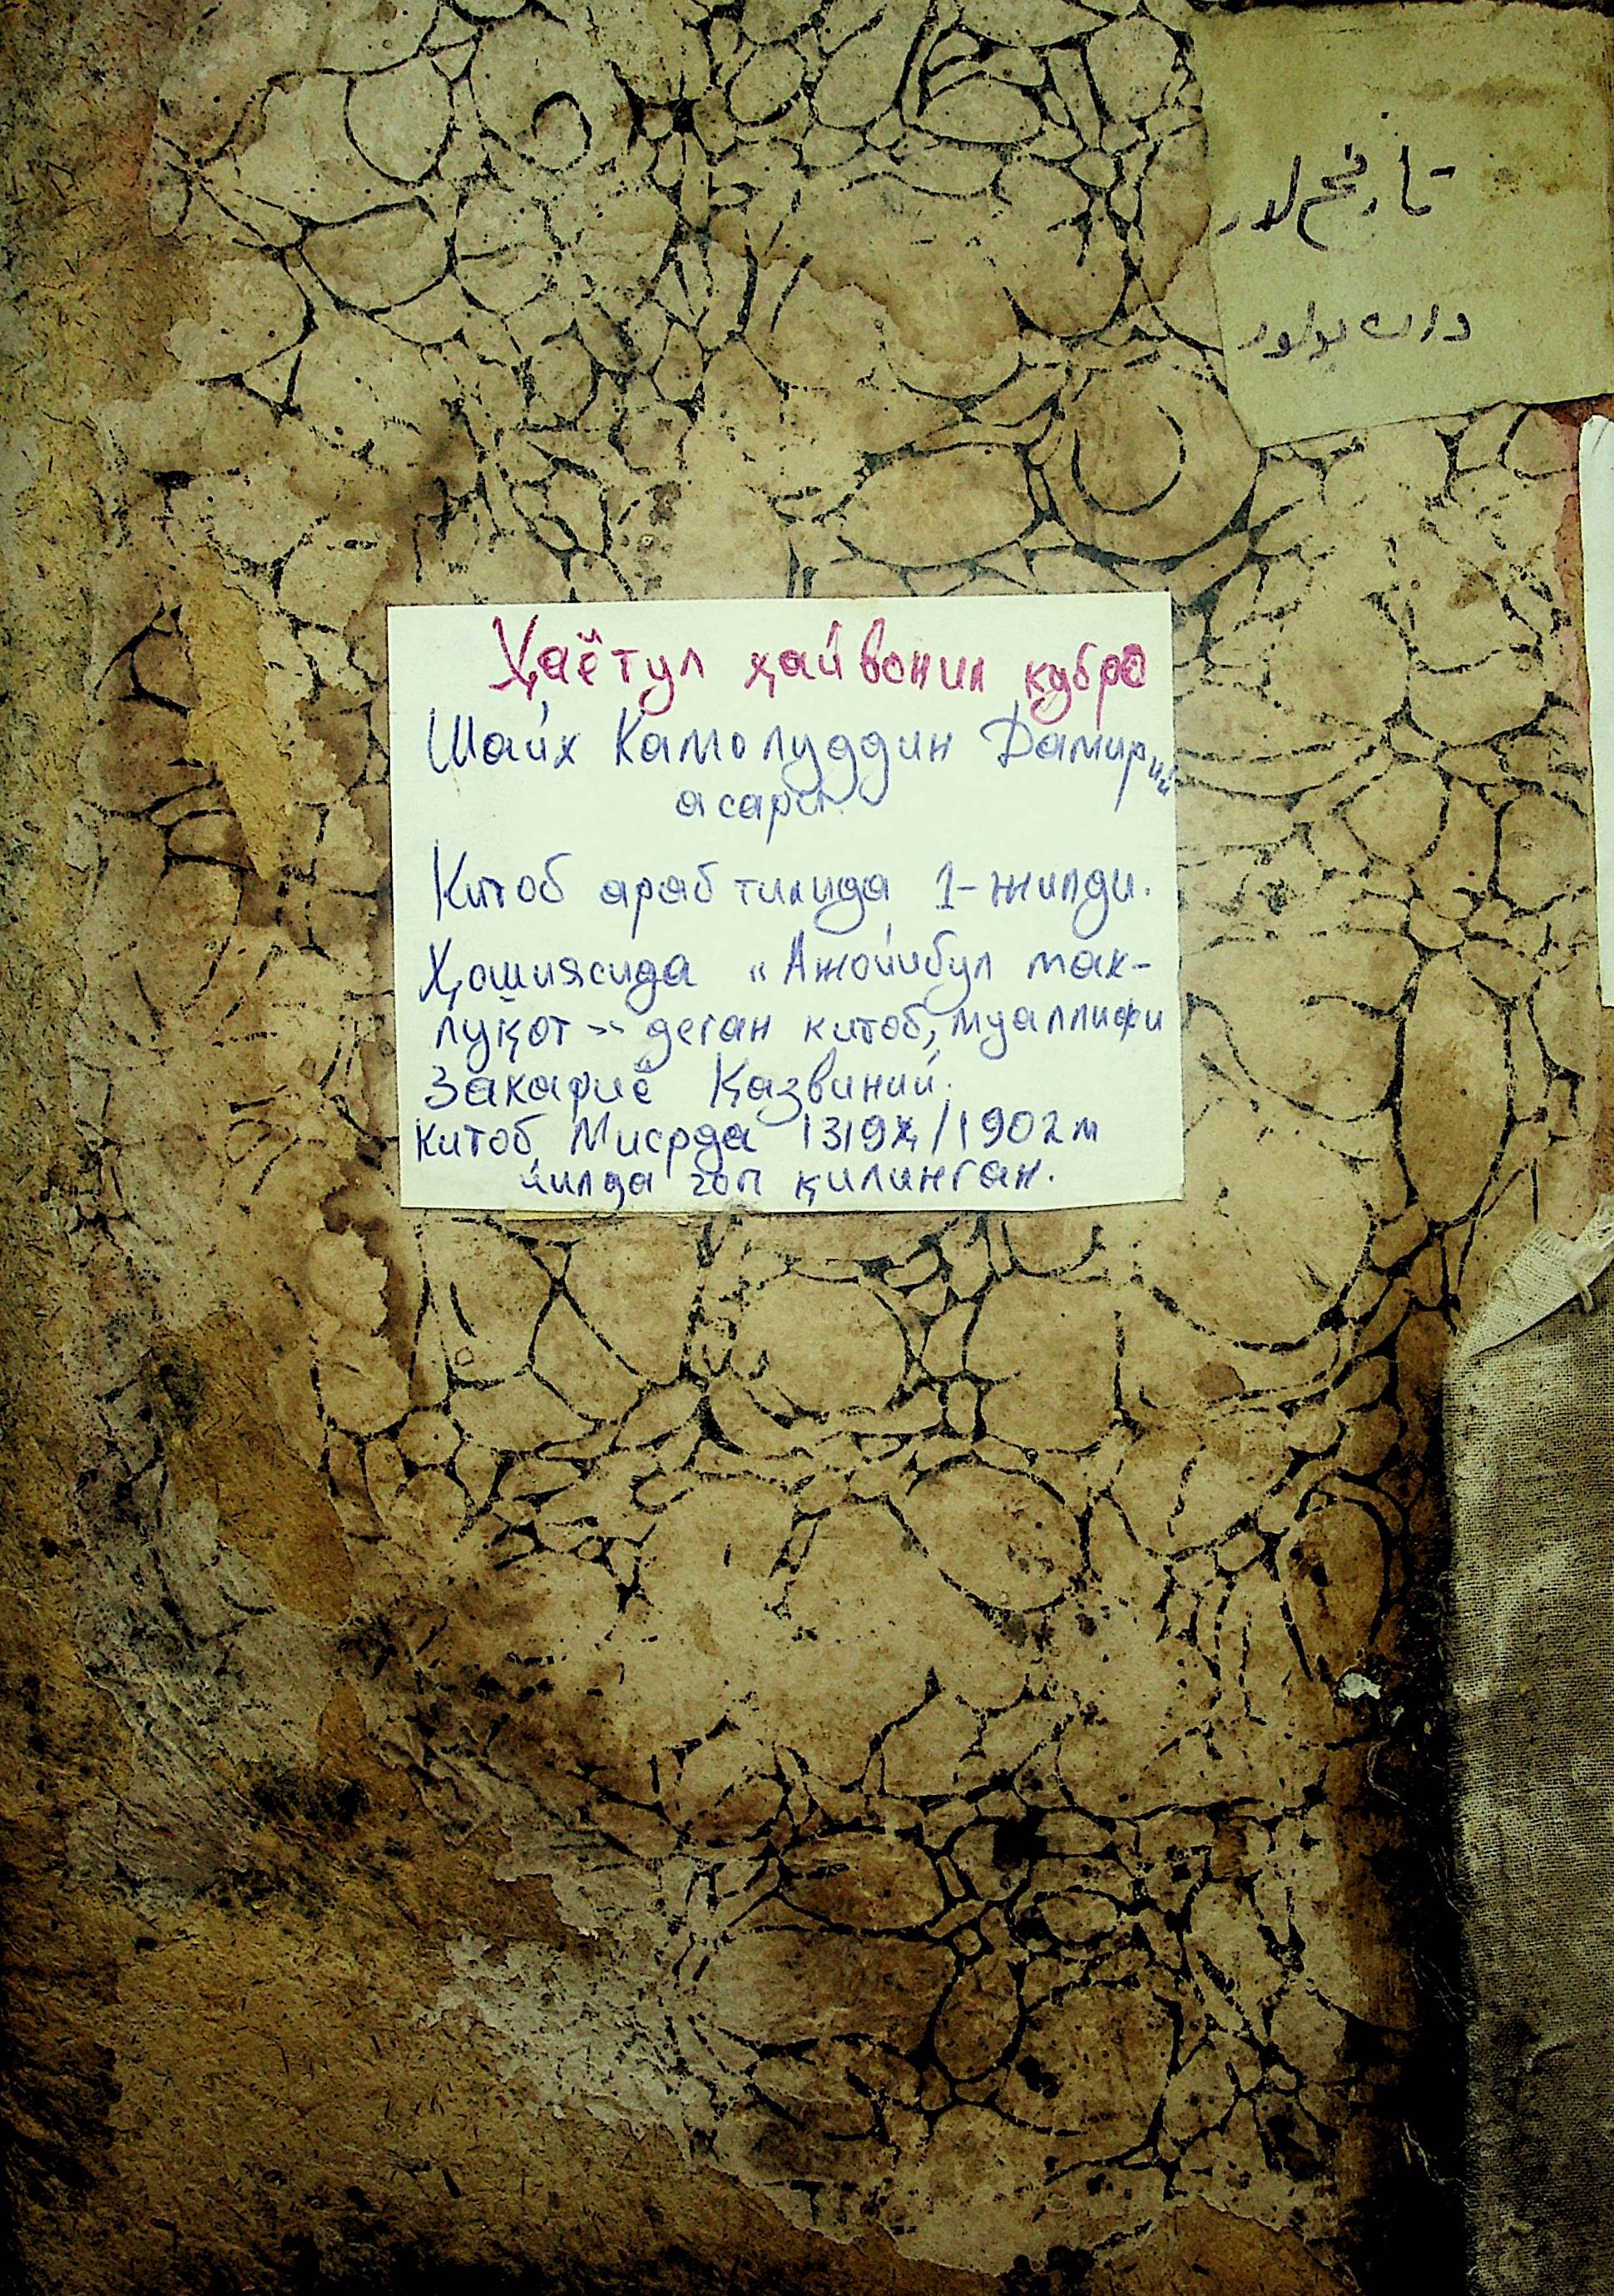 تاریخ لار
Ҳаётул ҳайвонил кубро
Шайх Камолуддин Дамирий
асари.
Китоб араб тилида 1-жилди.
Ҳошиясида «Ажойибул мах-
луқот» деган китоб, муаллифи
Закариё Қазвиний.
Китоб Мисрда 1319ҳ/1902м
йилда чоп қилинган.